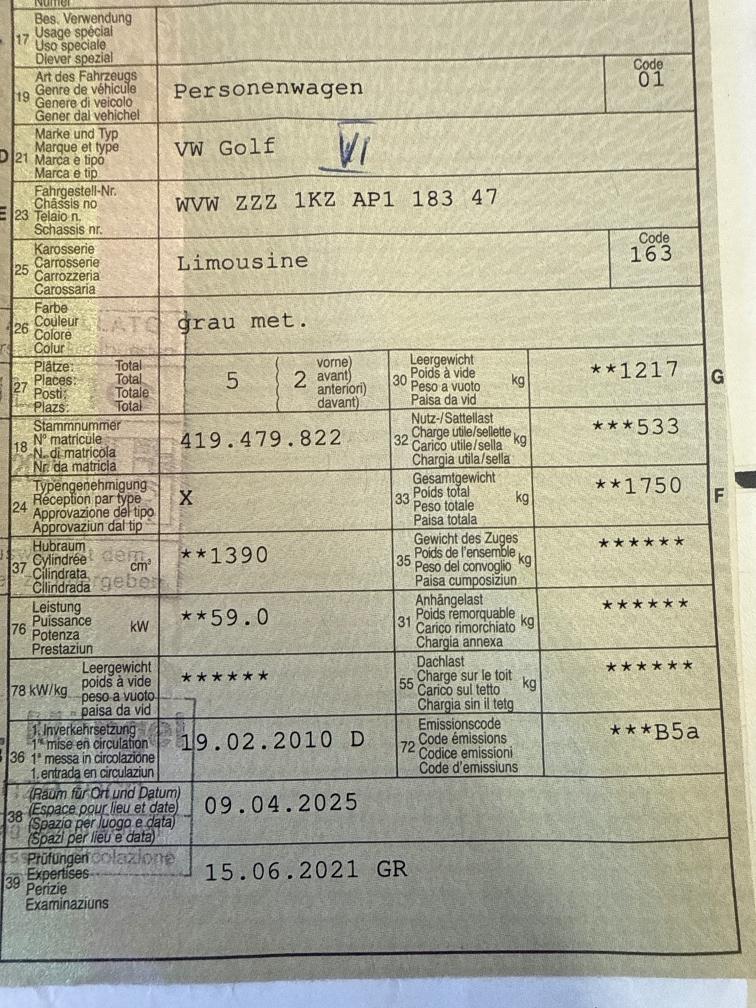 17 Bes. Verwendung
Usage spécial
Uso speciale
Diever spezial
19 Art des Fahrzeugs
Genre de véhicule
Genere di veicolo
Gener dal vehichel
Personenwagen
Code
01
D 21 Marke und Typ
Marque et type
Marca e tipo
Marca e tip
VW Golf VI
E 23 Fahrgestell-Nr.
Châssis no
Telaio n.
Schassis nr.
WVW ZZZ 1KZ AP1 183 47
25 Karosserie
Carrosserie
Carrozzeria
Carossaria
Limousine
Code
163
26 Farbe
Couleur
Colore
Colur
grau met.
27 Plätze: Total
Places: Total
Posti: Totale
Plazs: Total
5 ( 2 vorne)
avant)
anteriori)
davant)
30 Leergewicht
Poids à vide
Peso a vuoto
Paisa da vid
kg
**1217
G
18 Stammnummer
N° matricule
N. di matricola
Nr. da matricla
419.479.822
32 Nutz-/Sattellast
Charge utile/sellette
Carico utile/sella
Chargia utila/sella
kg
***533
24 Typengenehmigung
Réception par type
Approvazione del tipo
Approvaziun dal tip
X
33 Gesamtgewicht
Poids total
Peso totale
Paisa totala
kg
**1750
F
37 Hubraum
Cylindrée
Cilindrata
Cilindrada
cm³
**1390
35 Gewicht des Zuges
Poids de l'ensemble
Peso del convoglio
Paisa cumposiziun
kg
******
76 Leistung
Puissance
Potenza
Prestaziun
kW
**59.0
31 Anhängelast
Poids remorquable
Carico rimorchiato
Chargia annexa
kg
******
78 kW/kg Leergewicht
poids à vide
peso a vuoto
paisa da vid
******
55 Dachlast
Charge sur le toit
Carico sul tetto
Chargia sin il tetg
kg
******
36 1. Inverkehrsetzung
1re mise en circulation
1a messa in circolazione
1. entrada en circulaziun
19.02.2010 D
72 Emissionscode
Code émissions
Codice emissioni
Code d'emissiuns
***B5a
38 (Raum für Ort und Datum)
(Espace pour lieu et date)
(Spazio per luogo e data)
(Spazi per lieu e data)
09.04.2025
39 Prüfungen
Expertises
Perizie
Examinaziuns
15.06.2021 GR